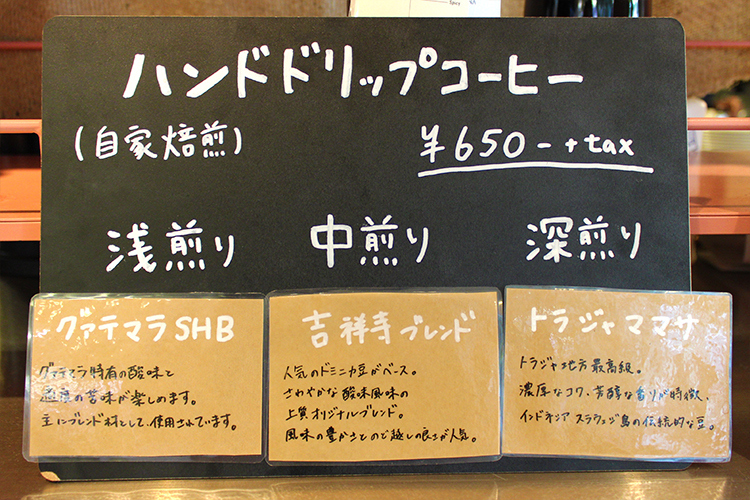 ハンドドリップコーヒー
(自家焙煎)
¥650-+tax
浅煎り
中煎り
深煎り
グァテマラSHB
グァテマラ特有の酸味と
適度の苦味が楽しめます。
主にブレンド材として、使用されています。
吉祥寺ブレンド
人気のドミニカ豆がベース。
さわやかな酸味風味の
上質オリジナルブレンド。
風味の豊かさとのど越しの良さが人気。
トラジャママサ
トラジャ地方最高級。
濃厚なコク、芳醇な香りが特徴、
インドネシア スラウェシ島の伝統的な豆。